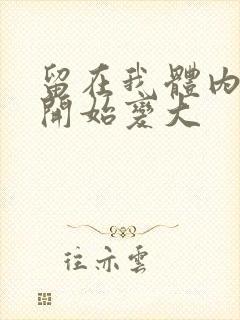 留在我體內
開始變大
往亦雲